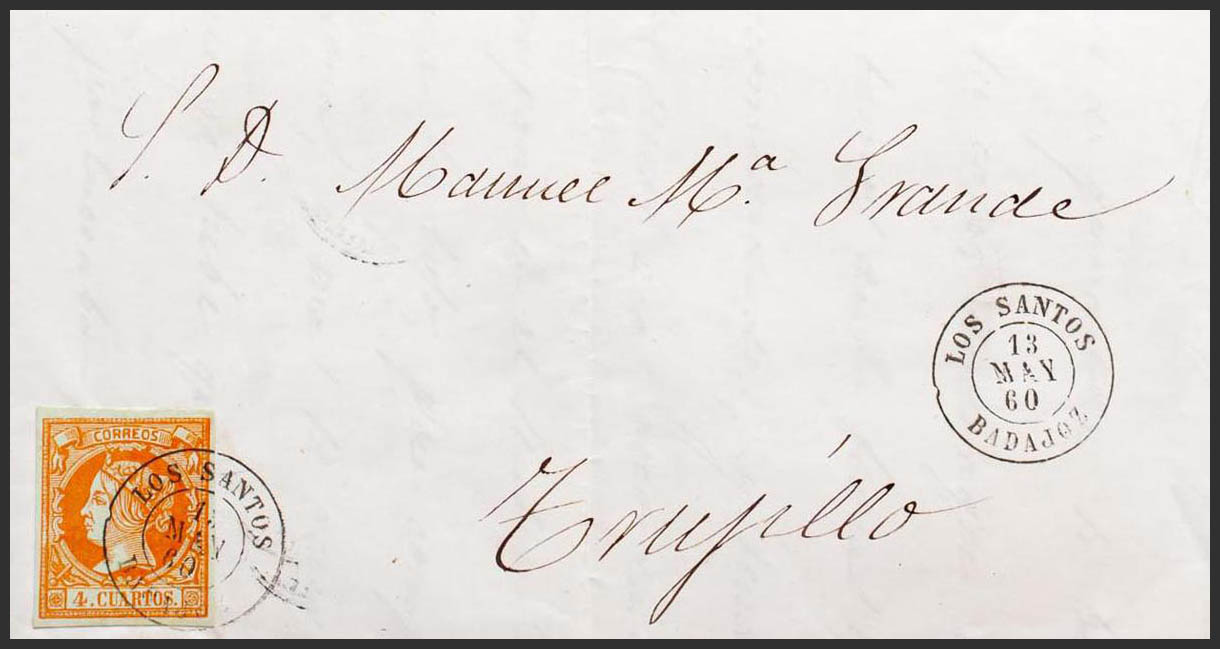 S. D. Manuel Mª. Grande
LOS SANTOS
13
MAY
60
BADAJOZ
Trujillo
CORREOS
4. CUARTOS.
LOS SANTOS
MAY
60